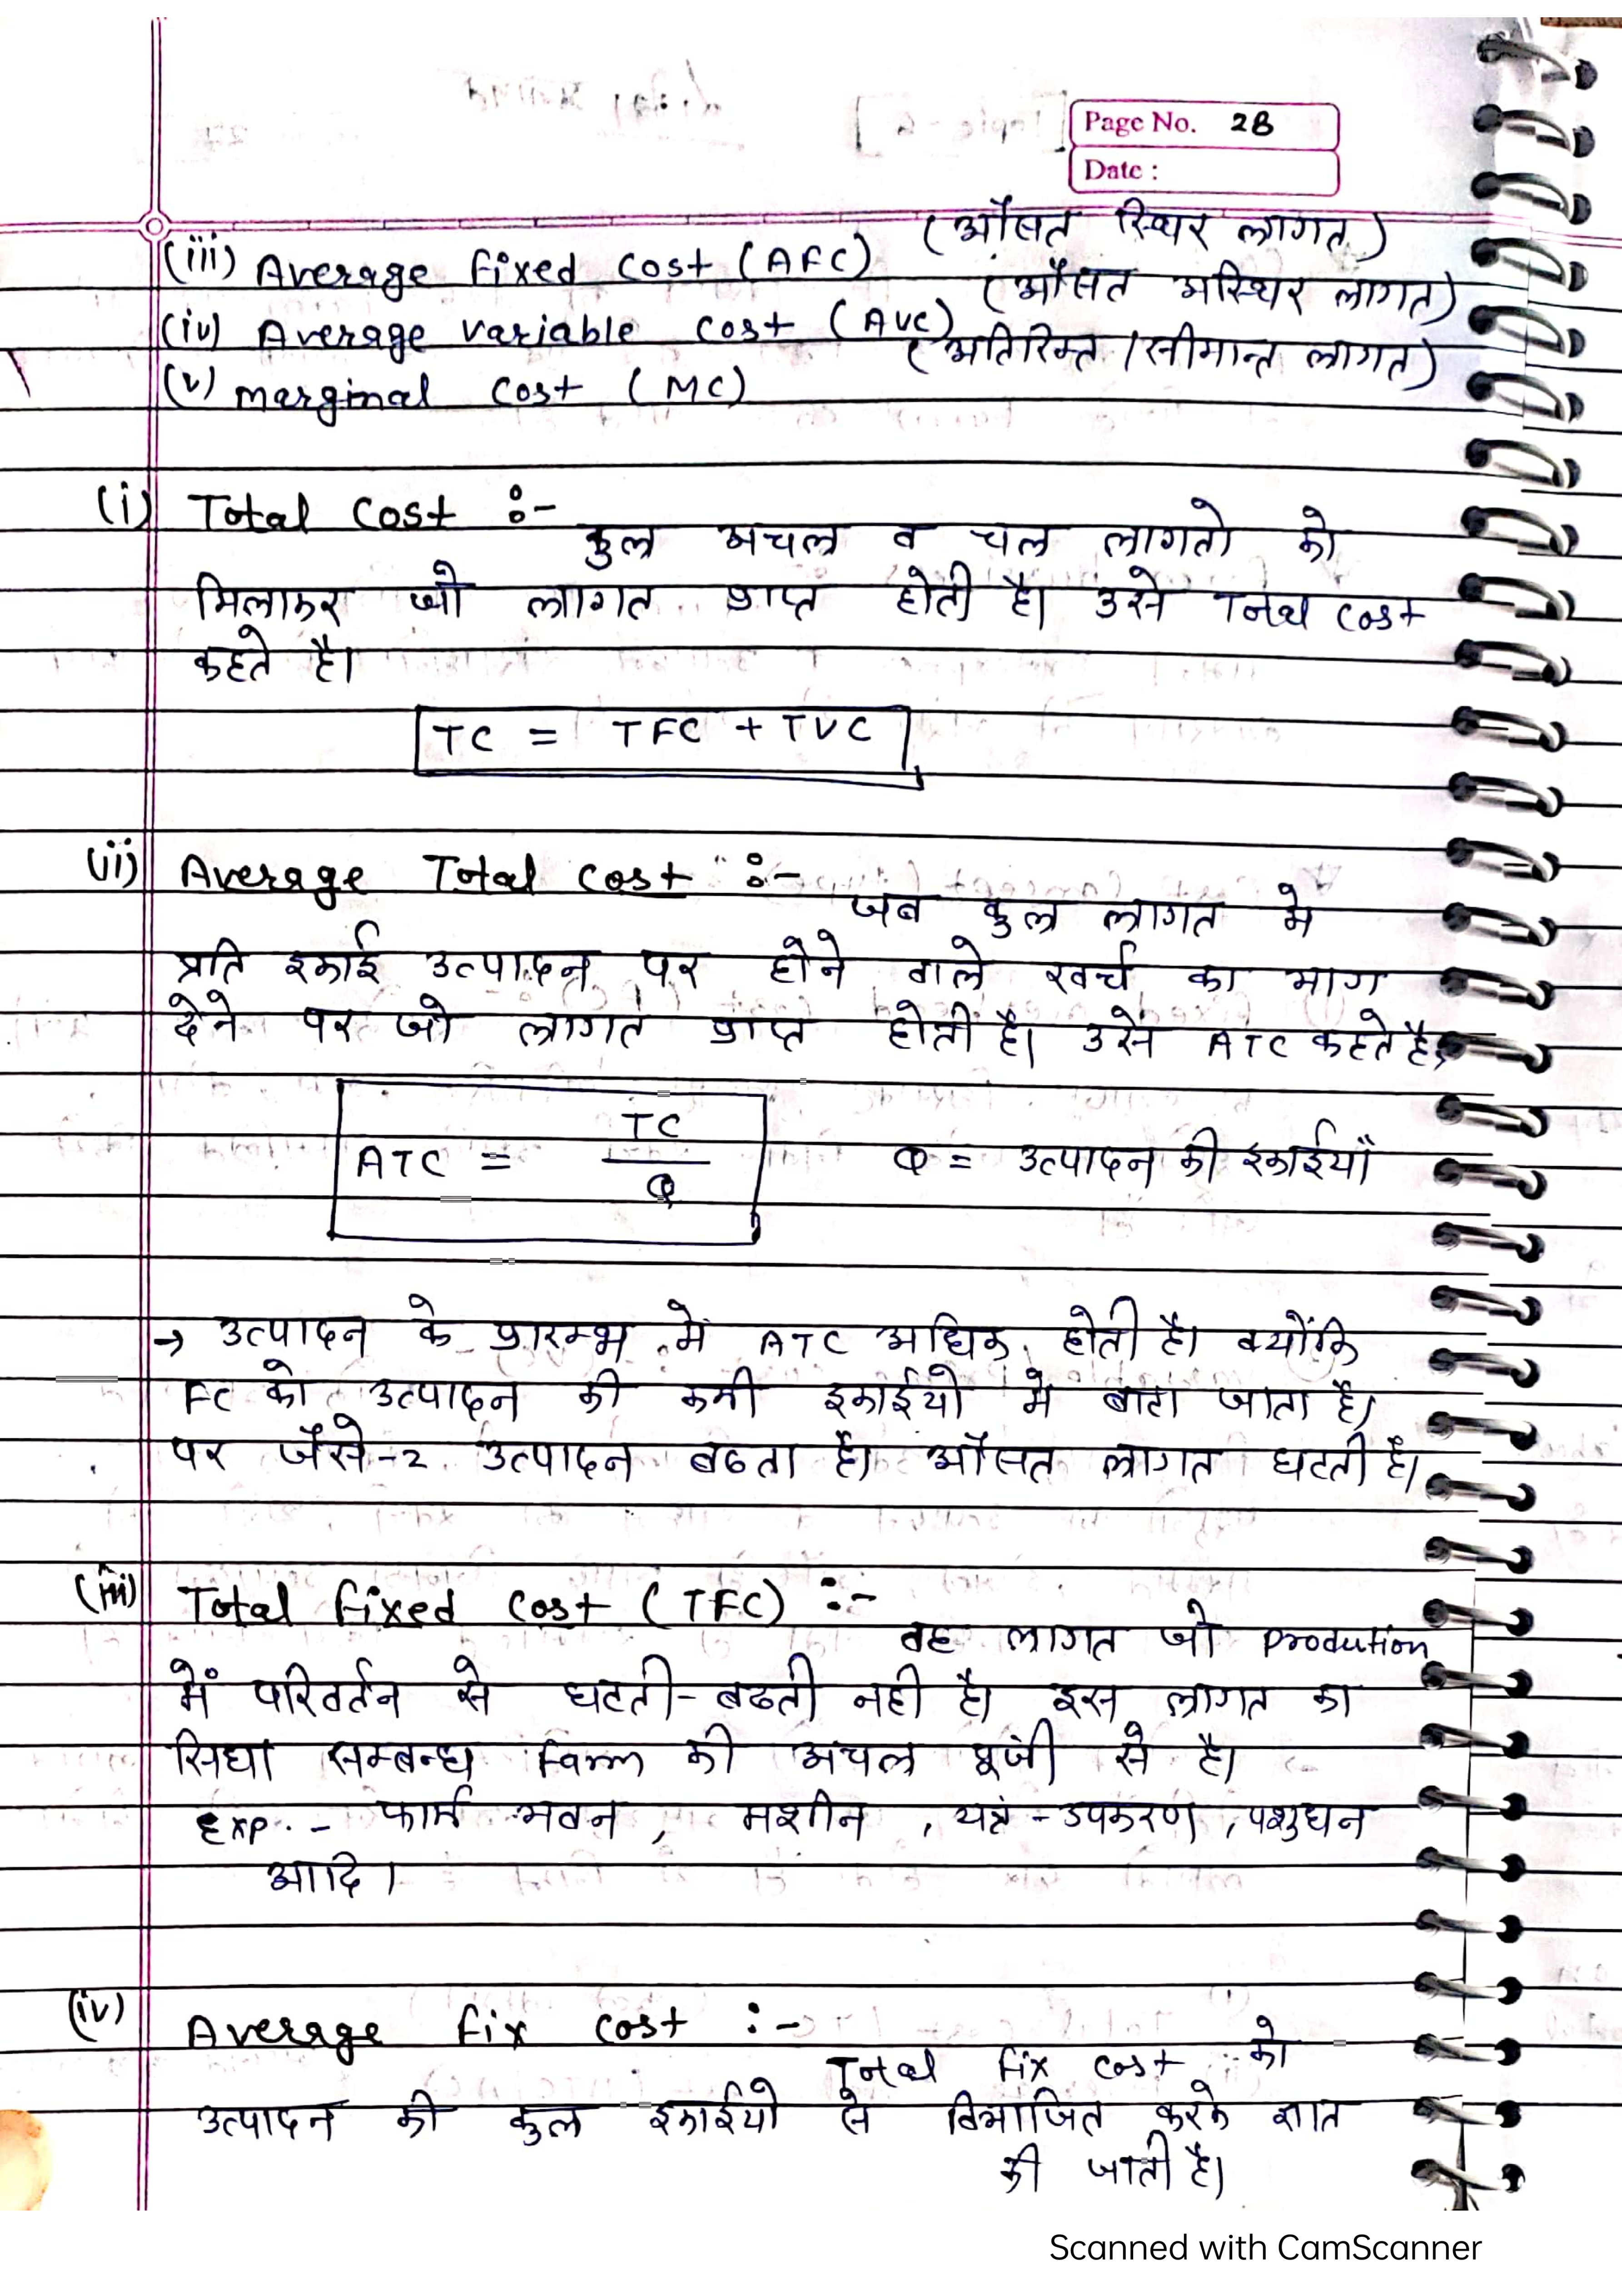 Page No. 28
Date :
(iii) Average fixed cost (AFC) (औसत स्थिर लागत)
(iv) Average variable cost (AVC) (औसत अस्थिर लागत)
(v) marginal cost (MC) (अतिरिक्त /सीमान्त लागत)
(i) Total cost :-
कुल अचल व चल लागतो को
मिलाकर जो लागत प्राप्त होती है। उसे Total cost
कहते है।
TC = TFC + TVC
(ii) Average Total cost :-
जब कुल लागत मे
प्रति इकाई उत्पादन पर होने वाले खर्च का भाग
देने पर जो लागत प्राप्त होती है। उसे ATC कहते है,
ATC = TC / Q Q = उत्पादन की इकाईयाँ
→ उत्पादन के प्रारम्भ में ATC अधिक होती है। क्योंकि
FC को उत्पादन की कमी इकाईयो मे बाटा जाता है।
पर जैसे-2 उत्पादन बढता है। औसत लागत घटती है।
(iii) Total fixed cost (TFC) :-
वह लागत जो production
में परिवर्तन से घटती-बढती नही है। इस लागत का
सिधा सम्बन्ध Farm की अचल पूंजी से है।
Exp. - फार्म भवन, मशीन, यत्रं-उपकरण, पशुधन
आदि।
(iv) Average fix cost :-
Total fix cost को
उत्पादन की कुल इकाईयो से विभाजित करके ज्ञात
की जाती है।
Scanned with CamScanner